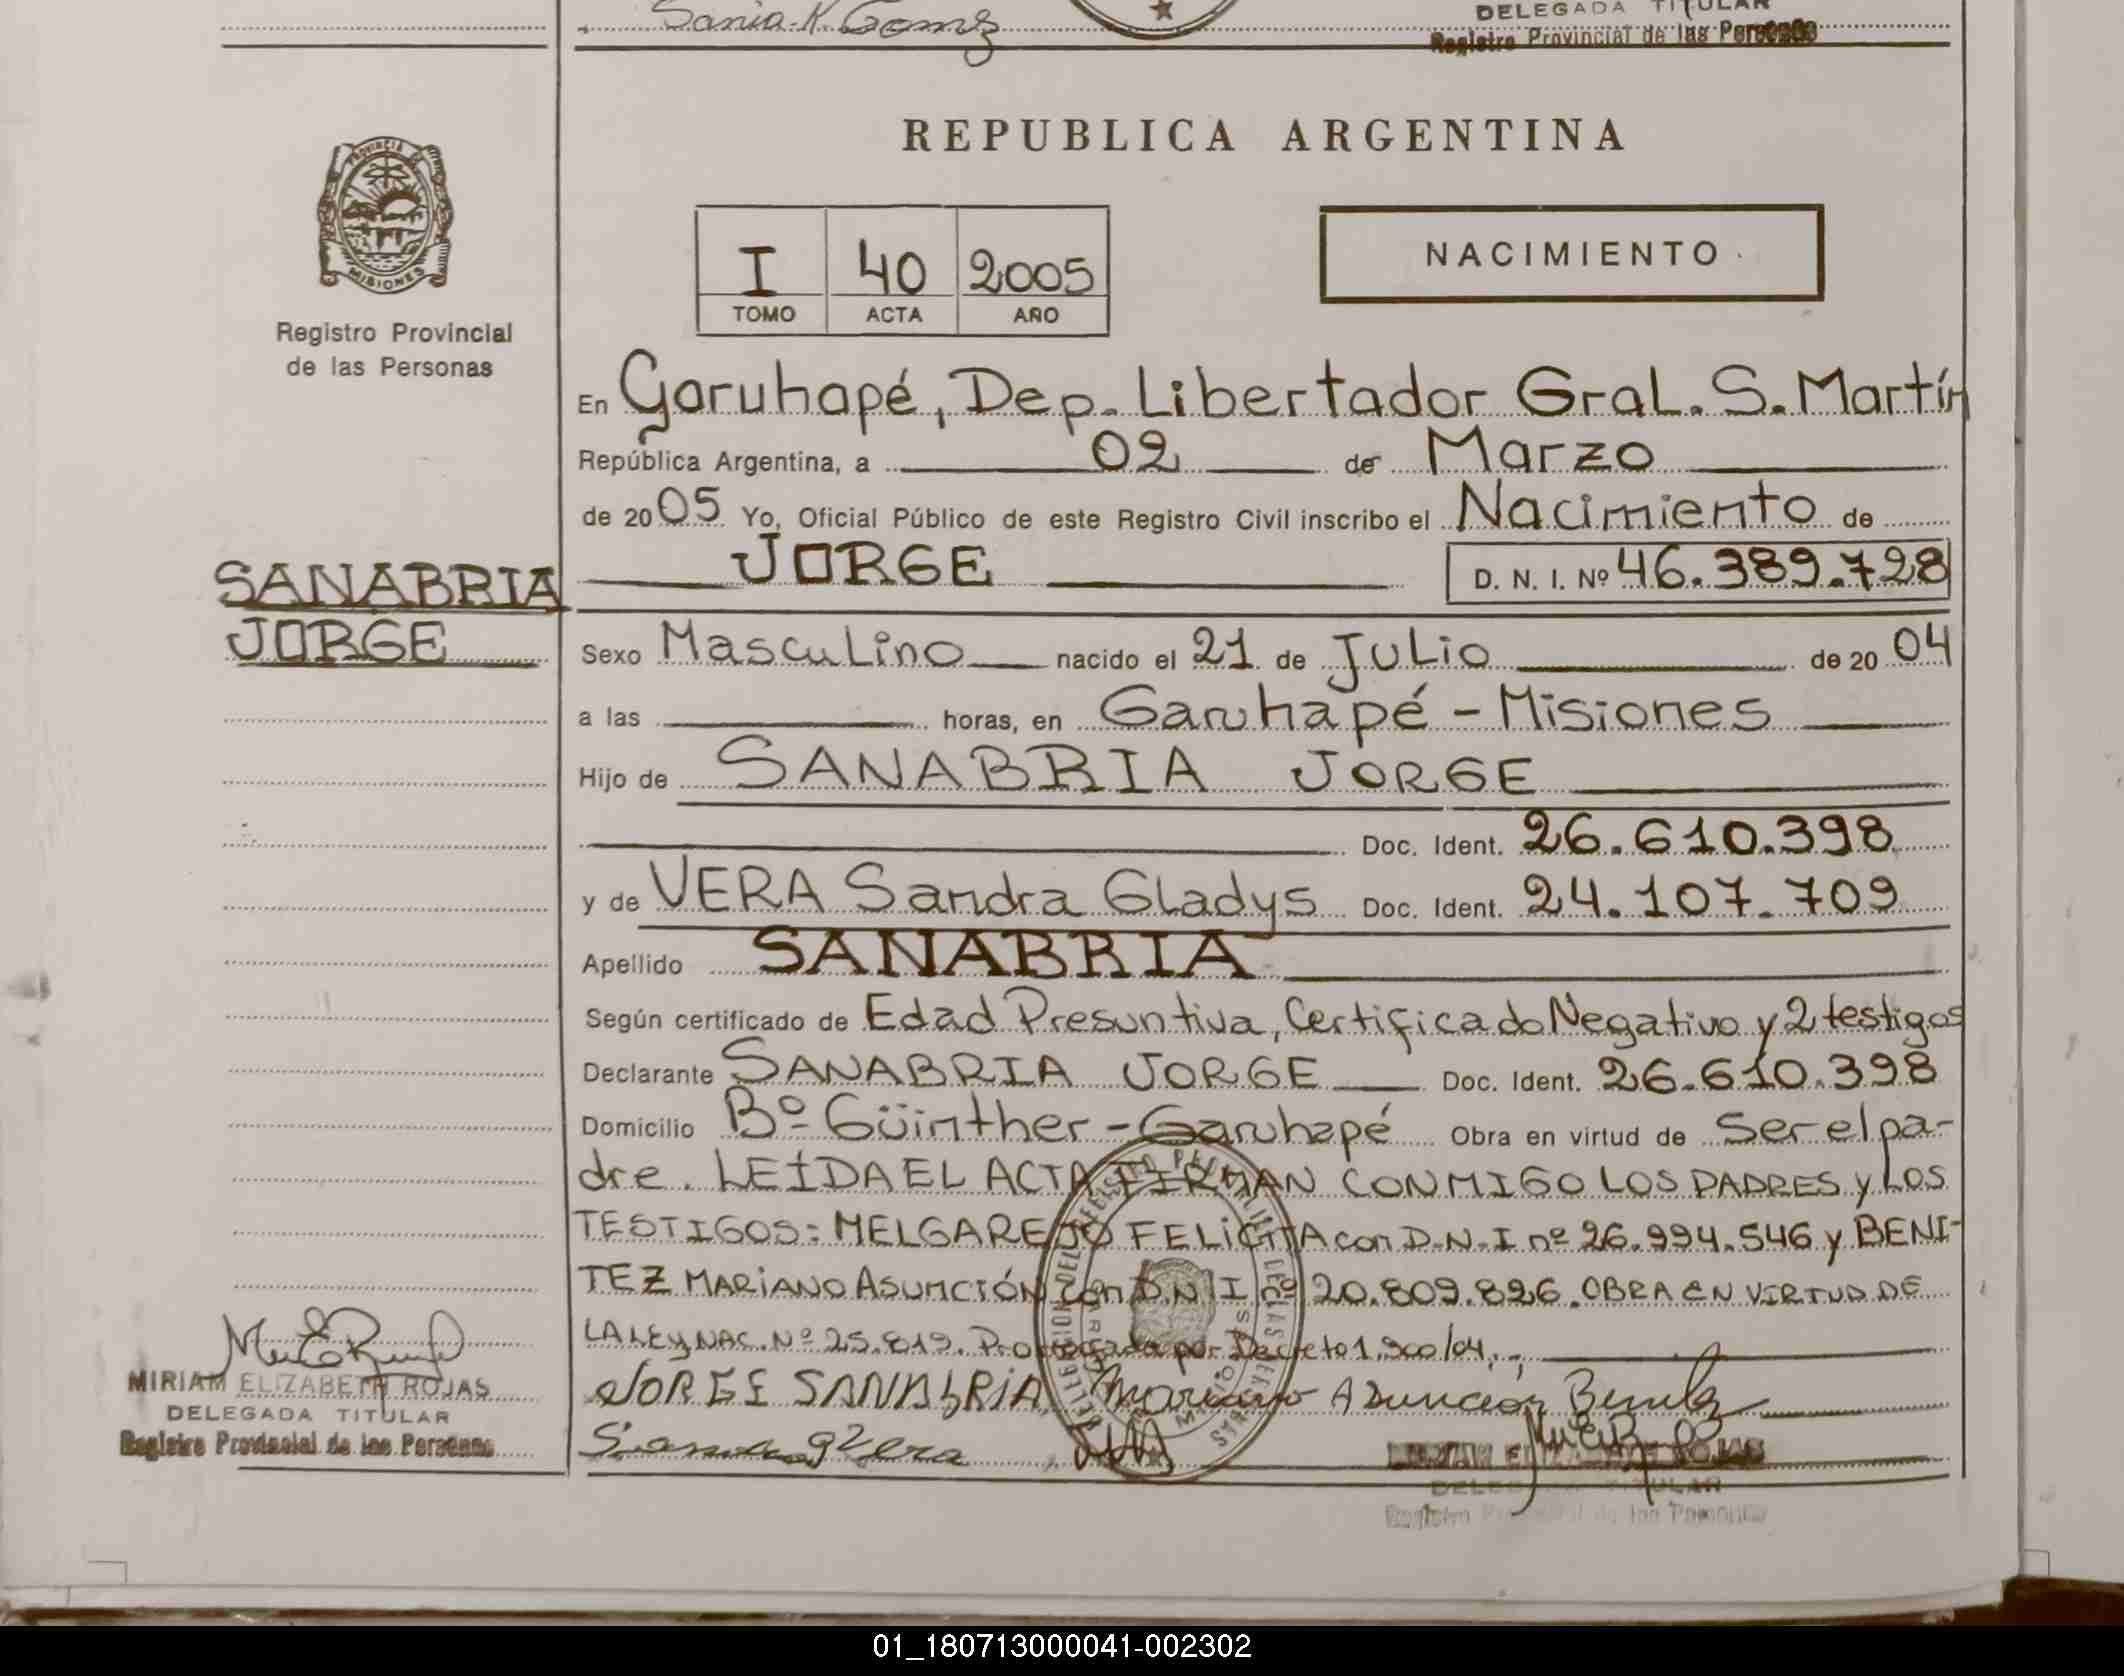 Sania K. Gomz
DELEGADA TITULAR
Registro Provincial de las Personas
REPUBLICA ARGENTINA
PROVINCIA DE
MISIONES
I 40 2005
TOMO ACTA AÑO
NACIMIENTO
Registro Provincial
de las Personas
En Garuhapé, Dep. Libertador Gral. S. Martín
República Argentina, a 02 de Marzo
de 2005 Yo, Oficial Público de este Registro Civil inscribo el Nacimiento de
JORGE D. N. I. Nº 46.389.728
SANABRIA
JORGE
Sexo Masculino nacido el 21 de Julio de 2004
a las horas, en Garuhapé - Misiones
Hijo de SANABRIA JORGE
Doc. Ident. 26.610.398
y de VERA Sandra Gladys Doc. Ident. 24.107.709
Apellido SANABRIA
Según certificado de Edad Presuntiva, Certificado Negativo y 2 testigos
Declarante SANABRIA JORGE Doc. Ident. 26.610.398
Domicilio Bº Güinther - Garuhapé Obra en virtud de Ser el pa-
dre. LEÍDA EL ACTA FIRMAN CONMIGO LOS PADRES y LOS
TESTIGOS: MELGAREJO FELICITA con D.N.I nº 26.994.546 y BENI-
TEZ MARIANO ASUNCIÓN con D.N.I nº 20.809.826. OBRA EN VIRTUD DE
LA LEY NAC. Nº 25.819. Prorrogada por Decreto 1.900/04.
JORGE SANABRIA Mariano Asunción Benitez
Sandra g Vera
MIRIAM ELIZABETH ROJAS
DELEGADA TITULAR
Registro Provincial de las Personas
MIRIAM ELIZABETH ROJAS
DELEGADA TITULAR
Registro Provincial de las Personas
01_180713000041-002302